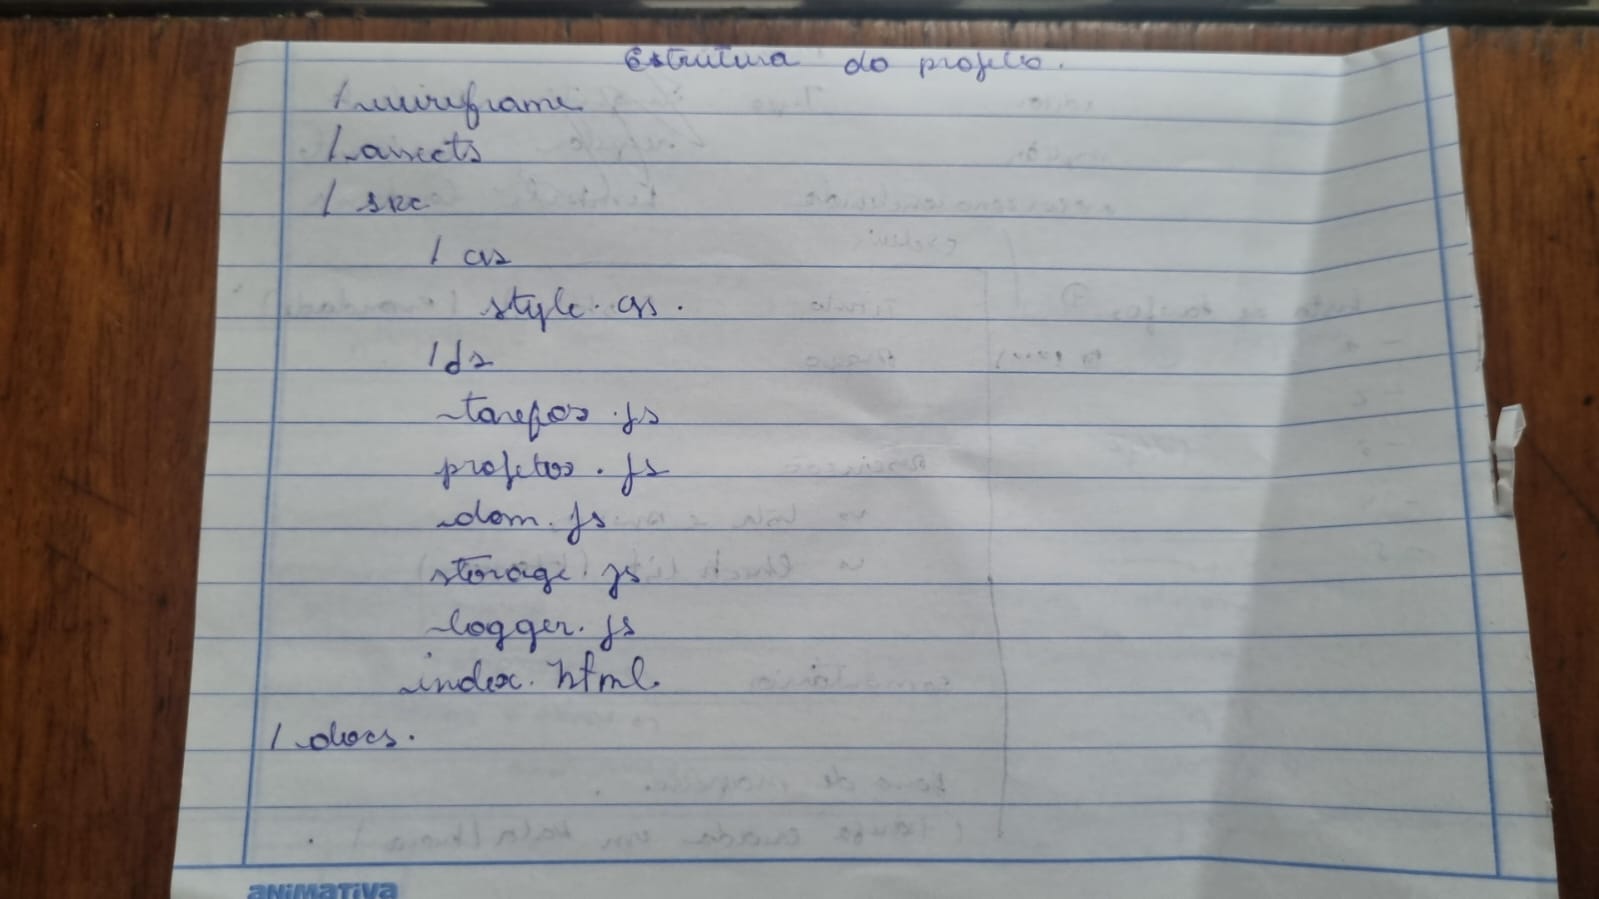 Estrutura do projeto.
/ wireframe
/ assects
/ src
/ css
style.css.
/ js
tarefas.js
projetos.js
dom.js
storage.js
logger.js
index.html.
/ docs.
ANiMATiVA